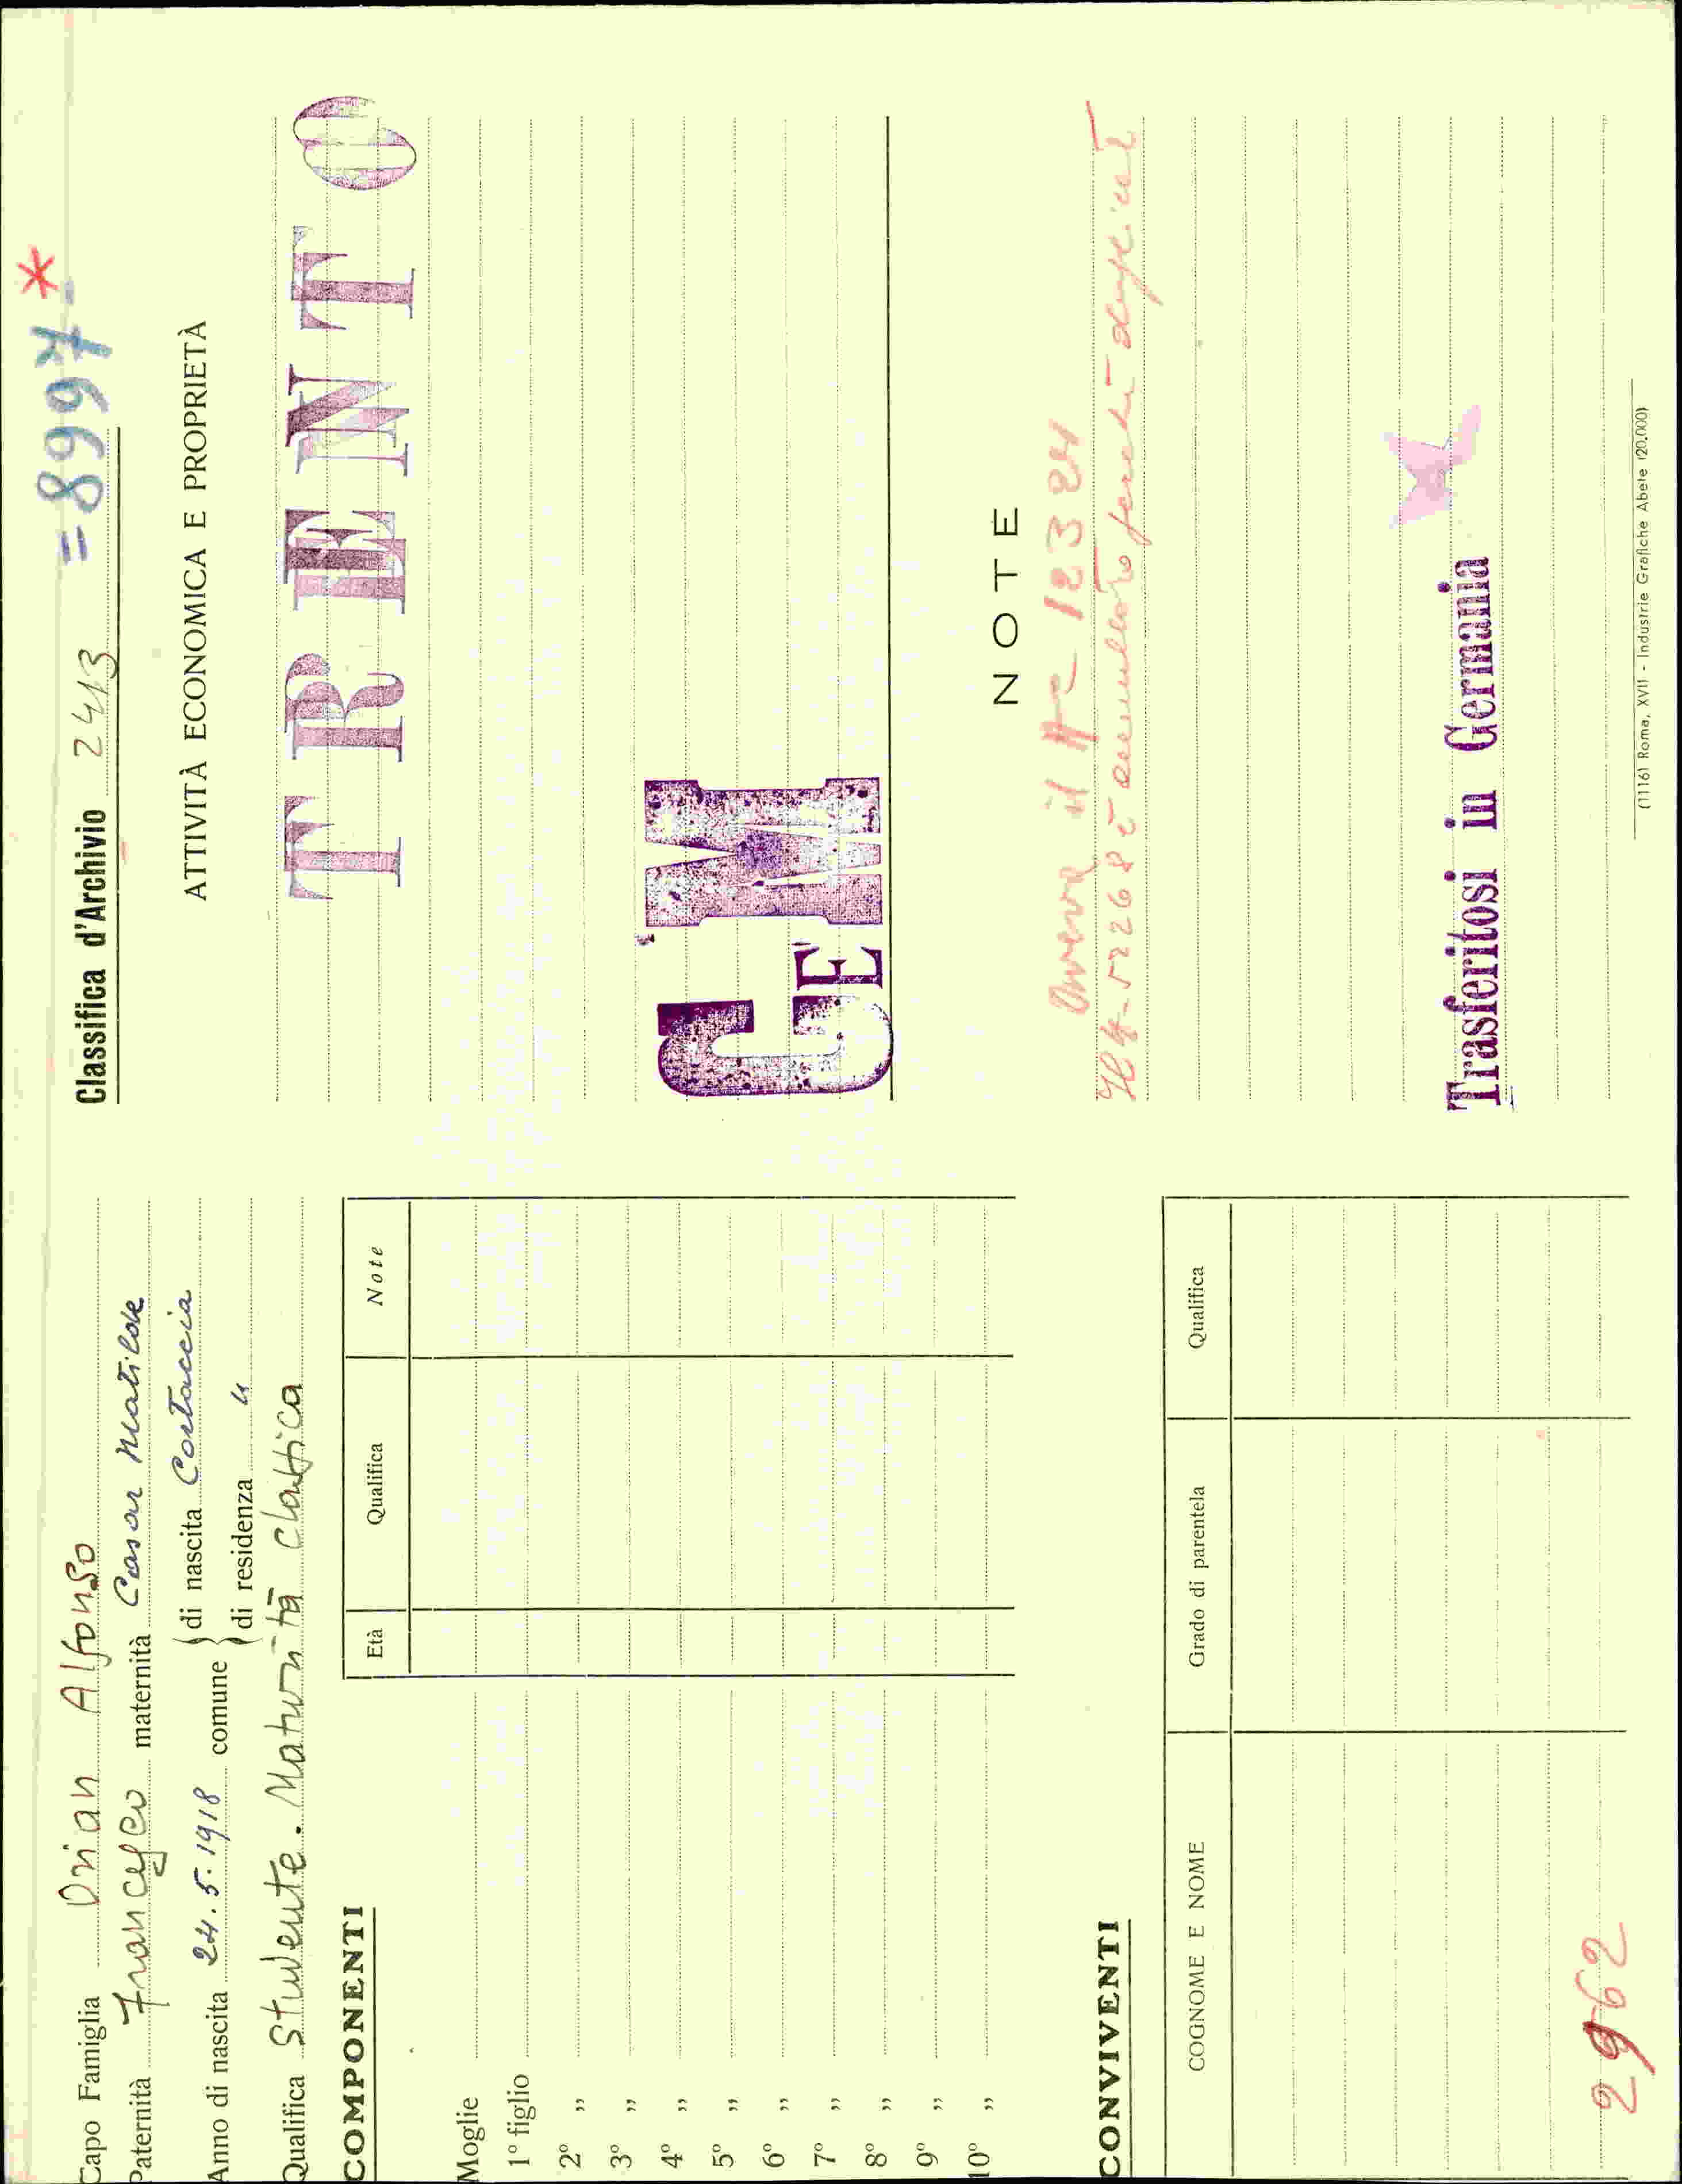 Capo Famiglia Orian Alfonso
Paternità Francesco maternità Casar Matilde
Anno di nascita 24.5.1918 comune
di nascita Cortaccia
di residenza "
Qualifica studente. Maturità classica
COMPONENTI
Età Qualifica Note
Moglie
1° figlio
2° ”
3° ”
4° ”
5° ”
6° ”
7° ”
8° ”
9° ”
10° ”
CONVIVENTI
COGNOME E NOME Grado di parentela Qualifica
2962
Classifica d'Archivio 2413 = 8997 *
ATTIVITÀ ECONOMICA E PROPRIETÀ
TRENTO
GEM
NOTE
Aveva il 12324
5226 è annullato perché
Trasferitosi in Germania
(11161 Roma, XVII - Industrie Grafiche Abete (20.000)